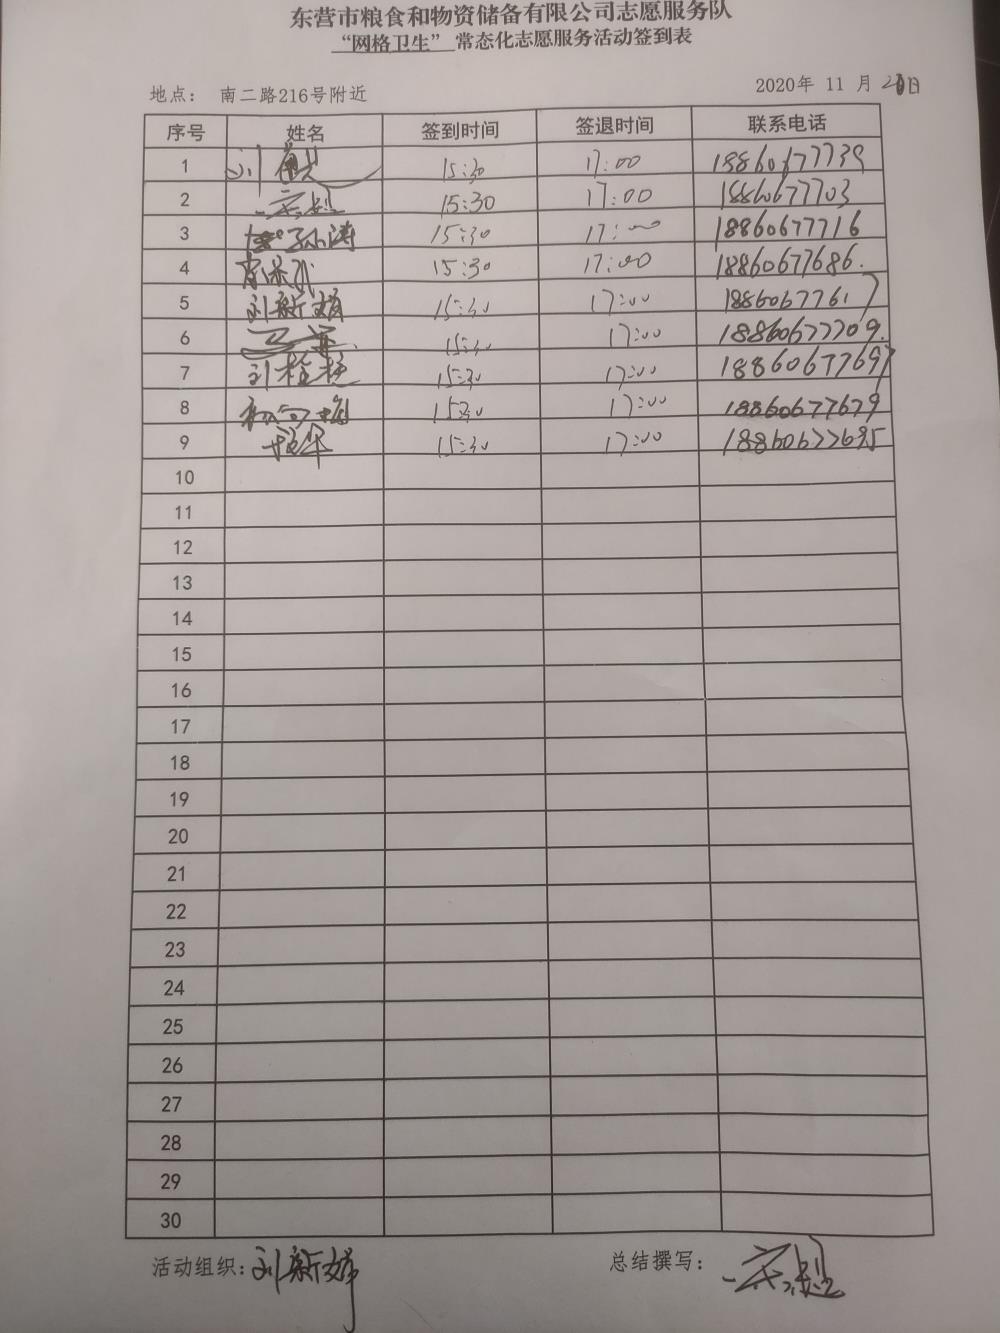 东营市粮食和物资储备有限公司志愿服务队
“网格卫生” 常态化志愿服务活动签到表
地点： 南二路216号附近 2020年 11 月 日
序号 姓名 签到时间 签退时间 联系电话
1 15:30 17:00 18860677739
2 15:30 17:00 18860677703
3 孙涛 15:30 17:00 18860677716
4 15:30 17:00 18860677686
5 刘新娣 15:30 17:00 18860677617
6 15:30 17:00 18860677709
7 15:30 17:00 18860677697
8 15:30 17:00 18860677679
9 15:30 17:00 18860677695
10
11
12
13
14
15
16
17
18
19
20
21
22
23
24
25
26
27
28
29
30
活动组织：刘新娣 总结撰写：